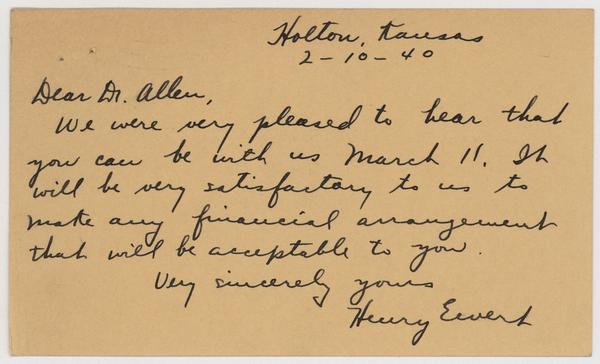 Holton, Kansas
2-10-40
Dear Dr. Allen,
We were very pleased to hear that
you can be with us March 11. It
will be very satisfactory to us to
make any financial arrangement
that will be acceptable to you.
Very sincerely yours
Henry Ewert